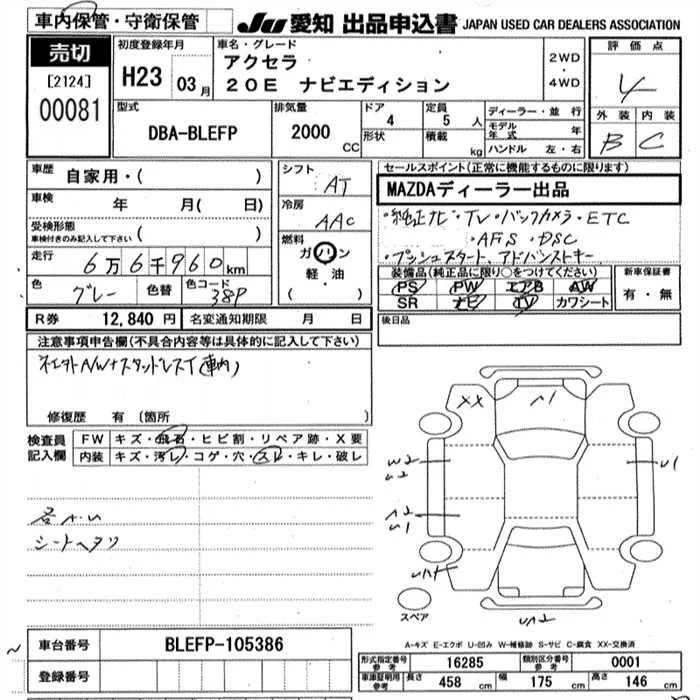 車内保管・守衛保管
JU 愛知 出品申込書 JAPAN USED CAR DEALERS ASSOCIATION
売切
[2124]
00081
初度登録年月
H23 03月
車名・グレード
アクセラ
20E ナビエディション
2WD
・
4WD
評価点
4
外装 内装
B C
型式
DBA-BLEFP
排気量
2000 CC
ドア
4
形状
定員
5人
積載
kg
ディーラー・並行
モデル年式 年
ハンドル 左・右
車歴 自家用・( )
車検 年 月( 日)
受検形態
車検付きのみ記入して下さい ( )
走行 6万6千960km
色 グレー 色替 色コード 38P
シフト
AT
冷房
AAC
燃料
ガソリン
軽・油
( ・ )
セールスポイント(正常に機能するものに限ります)
MAZDAディーラー出品
・純正ナビ・TV・バックカメラ・ETC
・AFS・DSC
・プッシュスタート、アドバンストキー
装備品(純正品に限り○をつけてください)
PS PW エアB AW
SR ナビ TV カワシート
新車保証書
有・無
後日品
R券 12,840円 名変通知期限 月 日
注意事項申告欄(不具合内容等は具体的に記入して下さい)
修復歴 有 (箇所
検査員
記入欄
FW キズ・飛石・ヒビ割・リペア跡・X要
内装 キズ・汚レ・コゲ・穴・スレ・キレ・破レ
シートヘタリ
XX
A1
W2
U2
A2
U1
U1
スペア
A-キズ E-エクボ U-凹み W-補修跡 S-サビ C-腐食 XX-交換済
車台番号 BLEFP-105386
登録番号
形式指定番号
参考
16285
類別区分番号
参考
0001
車庫証明用
参考
長さ 458cm 幅 175cm 高さ 146cm